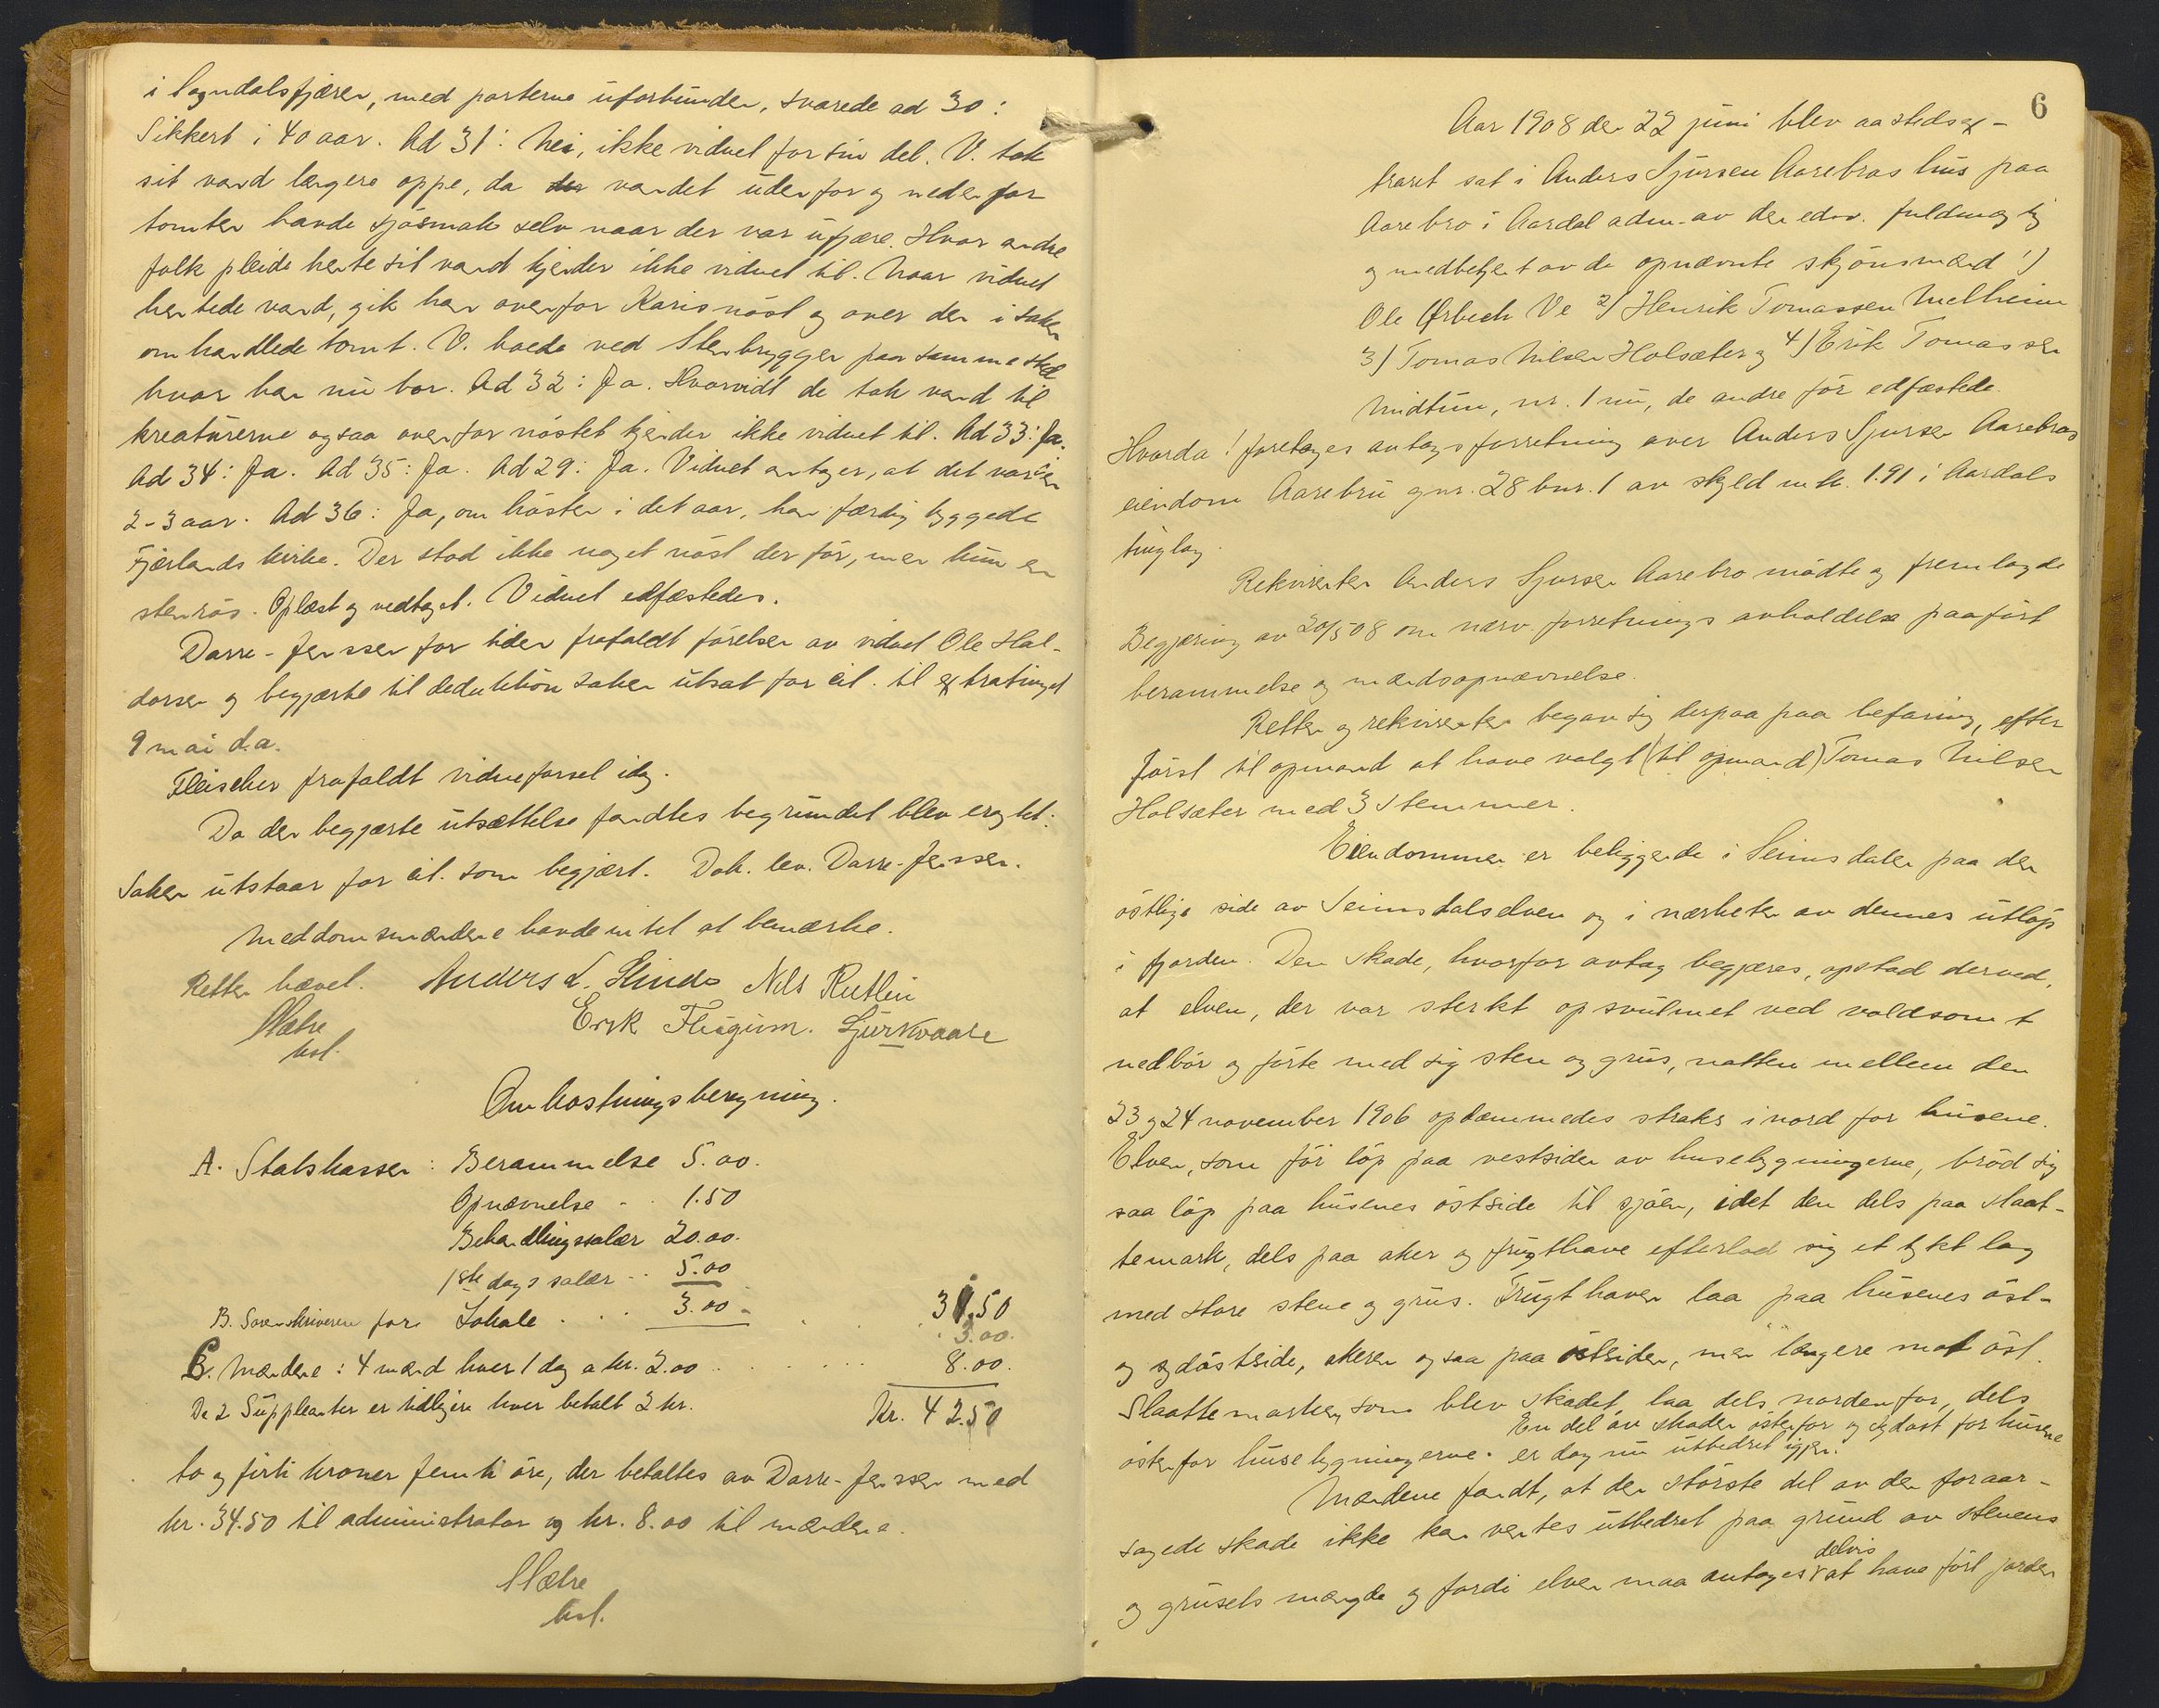 i Sogndalsfjæren, med parterne uforbunden, svarede ad 30:
Sikkert i 40 aar. Ad 31: Nei, ikke vidnet for sin del. V. tok
sit vand længere oppe, da vandet udenfor og nedenfor
tomten havde sjøsmak selv naar der var ufjære. Hvor andre
folk pleide hente sit vand kjender ikke vidnet til. Naar vidnet
hentede vand, gik han ovenfor Karisnöst og over den i saken
omhandlede tomt. V. boede ved Stenbryggen paa samme sted
hvor han nu bor. Ad 32: Ja. Hvorvidt de tok vand til
kreaturerne ogsaa ovenfor nöstet kjender ikke vidnet til. Ad 33: Ja.
Ad 34: Ja. Ad 35: Ja. Ad 29: Ja. Vidnet antager, at det var en
2-3 aar. Ad 36: Ja, om hösten i det aar, han færdigbyggede
Fjærlands kirke. Der stod ikke noget nöst der för, men kun en
stenrös. Oplæst og vedtaget. Vidnet edfæstedes.
Darre-Jenssen for tiden frafaldt förelsen av vidnet Ole Hal-
dorsen og begjærte til deduktion saken utsat for ail. til extratinget
9 mai d.a.
Fleischer frafaldt vidneförsel idag.
Da den begjærte utsættelse fandtes begrundet blev eragtet:
Saken utstaar for ail. som begjært. Dok. lev. Darre-Jenssen.
Meddomsmændene havde intet at bemærke.
Retten hævet. Anders L. Slinde Nils Rutlin
Erik Flugum. Sjur Kvaale
Mæhre
kst.
Omkostningsberegning.
A. Statskassen: Berammelse 5.00.
Opnævnelse - 1.50
Behandlingssalær 20.00.
1ste dags salær .. 5.00
31.50
B. Sorenskriveren for Lokale . . . 3.00 -
3.00.
C. Mændene: 4 mænd hver 1 dag a kr. 2.00 . . . . . 8.00.
De 2 Suppleanter er tidligere hver betalt 2 kr.
Kr. 42.50
to og firti kroner femti öre, der betaltes av Darre-Jenssen med
kr. 34.50 til administrator og kr. 8.00 til mændene.
Mæhre
kst.
6
Aar 1908 den 22 juni blev aastedsex-
traret sat i Anders Sjursen Aarebros hus paa
Aarebro i Aardal adm. av den edsv. fuldmægtig
og medbetjent av de opnævnte skjönsmænd 1)
Ole Ørbech Ve 2) Henrik Tomassen Melheim
3) Tomas Nilsen Holsæter og 4) Erik Tomassen
Midtun, nr. 1 nu, de andre för edfæstede.
Hvorda! foretages avtagsforretning over Anders Sjursen Aarebros
eiendom Aarebru gnr. 28 bnr. 1 av skyld mk. 1.91 i Aardals
tinglag.
Rekvirenten Anders Sjursen Aarebro mödte og fremlagde
Begjæring av 20/5 08 om nærv. forretnings avholdelse paafört
berammelse og mændsopnævnelse.
Retten og rekvirenten begav sig derpaa paa befaring, efter
först til opmand at have valgt (til opmand) Tomas Nilsen
Holsæter med 3 stemmer.
Eiendommen er beliggende i Seimsdalen paa den
östlige side av Seimsdalselven og i nærheten av dennes utlöp
i fjorden. Den skade, hvorfor avtag begjæres, opstod derved,
at elven, der var sterkt opsvulmet ved voldsomt
nedbör og förte med sig sten og grus, natten mellem den
23 og 24 november 1906 opdæmmedes straks i nord for husene.
Elven, som för löp paa vestsiden av husebygningerne, bröd sig
saa löp paa husenes östside til sjöen, idet den dels paa slaat-
temark, dels paa aker og frugthave efterlod sig et tykt lag
med store stene og grus. Frugthaven laa paa husenes öst-
og sydöstside, akeren ogsaa paa östsiden, men længere mot öst.
Slaattemarken, som blev skadet, laa dels nordenfor, dels
En del av skaden östenfor og sydöst for husene
östenfor husebygningerne. er dog nu utbedret igjen.
Mændene fandt, at den störste del av den foraar-
sagede skade ikke kan ventes utbedret paa grund av stenens
delvis
og grusets mængde og fordi elven maa antages at have fört jorden